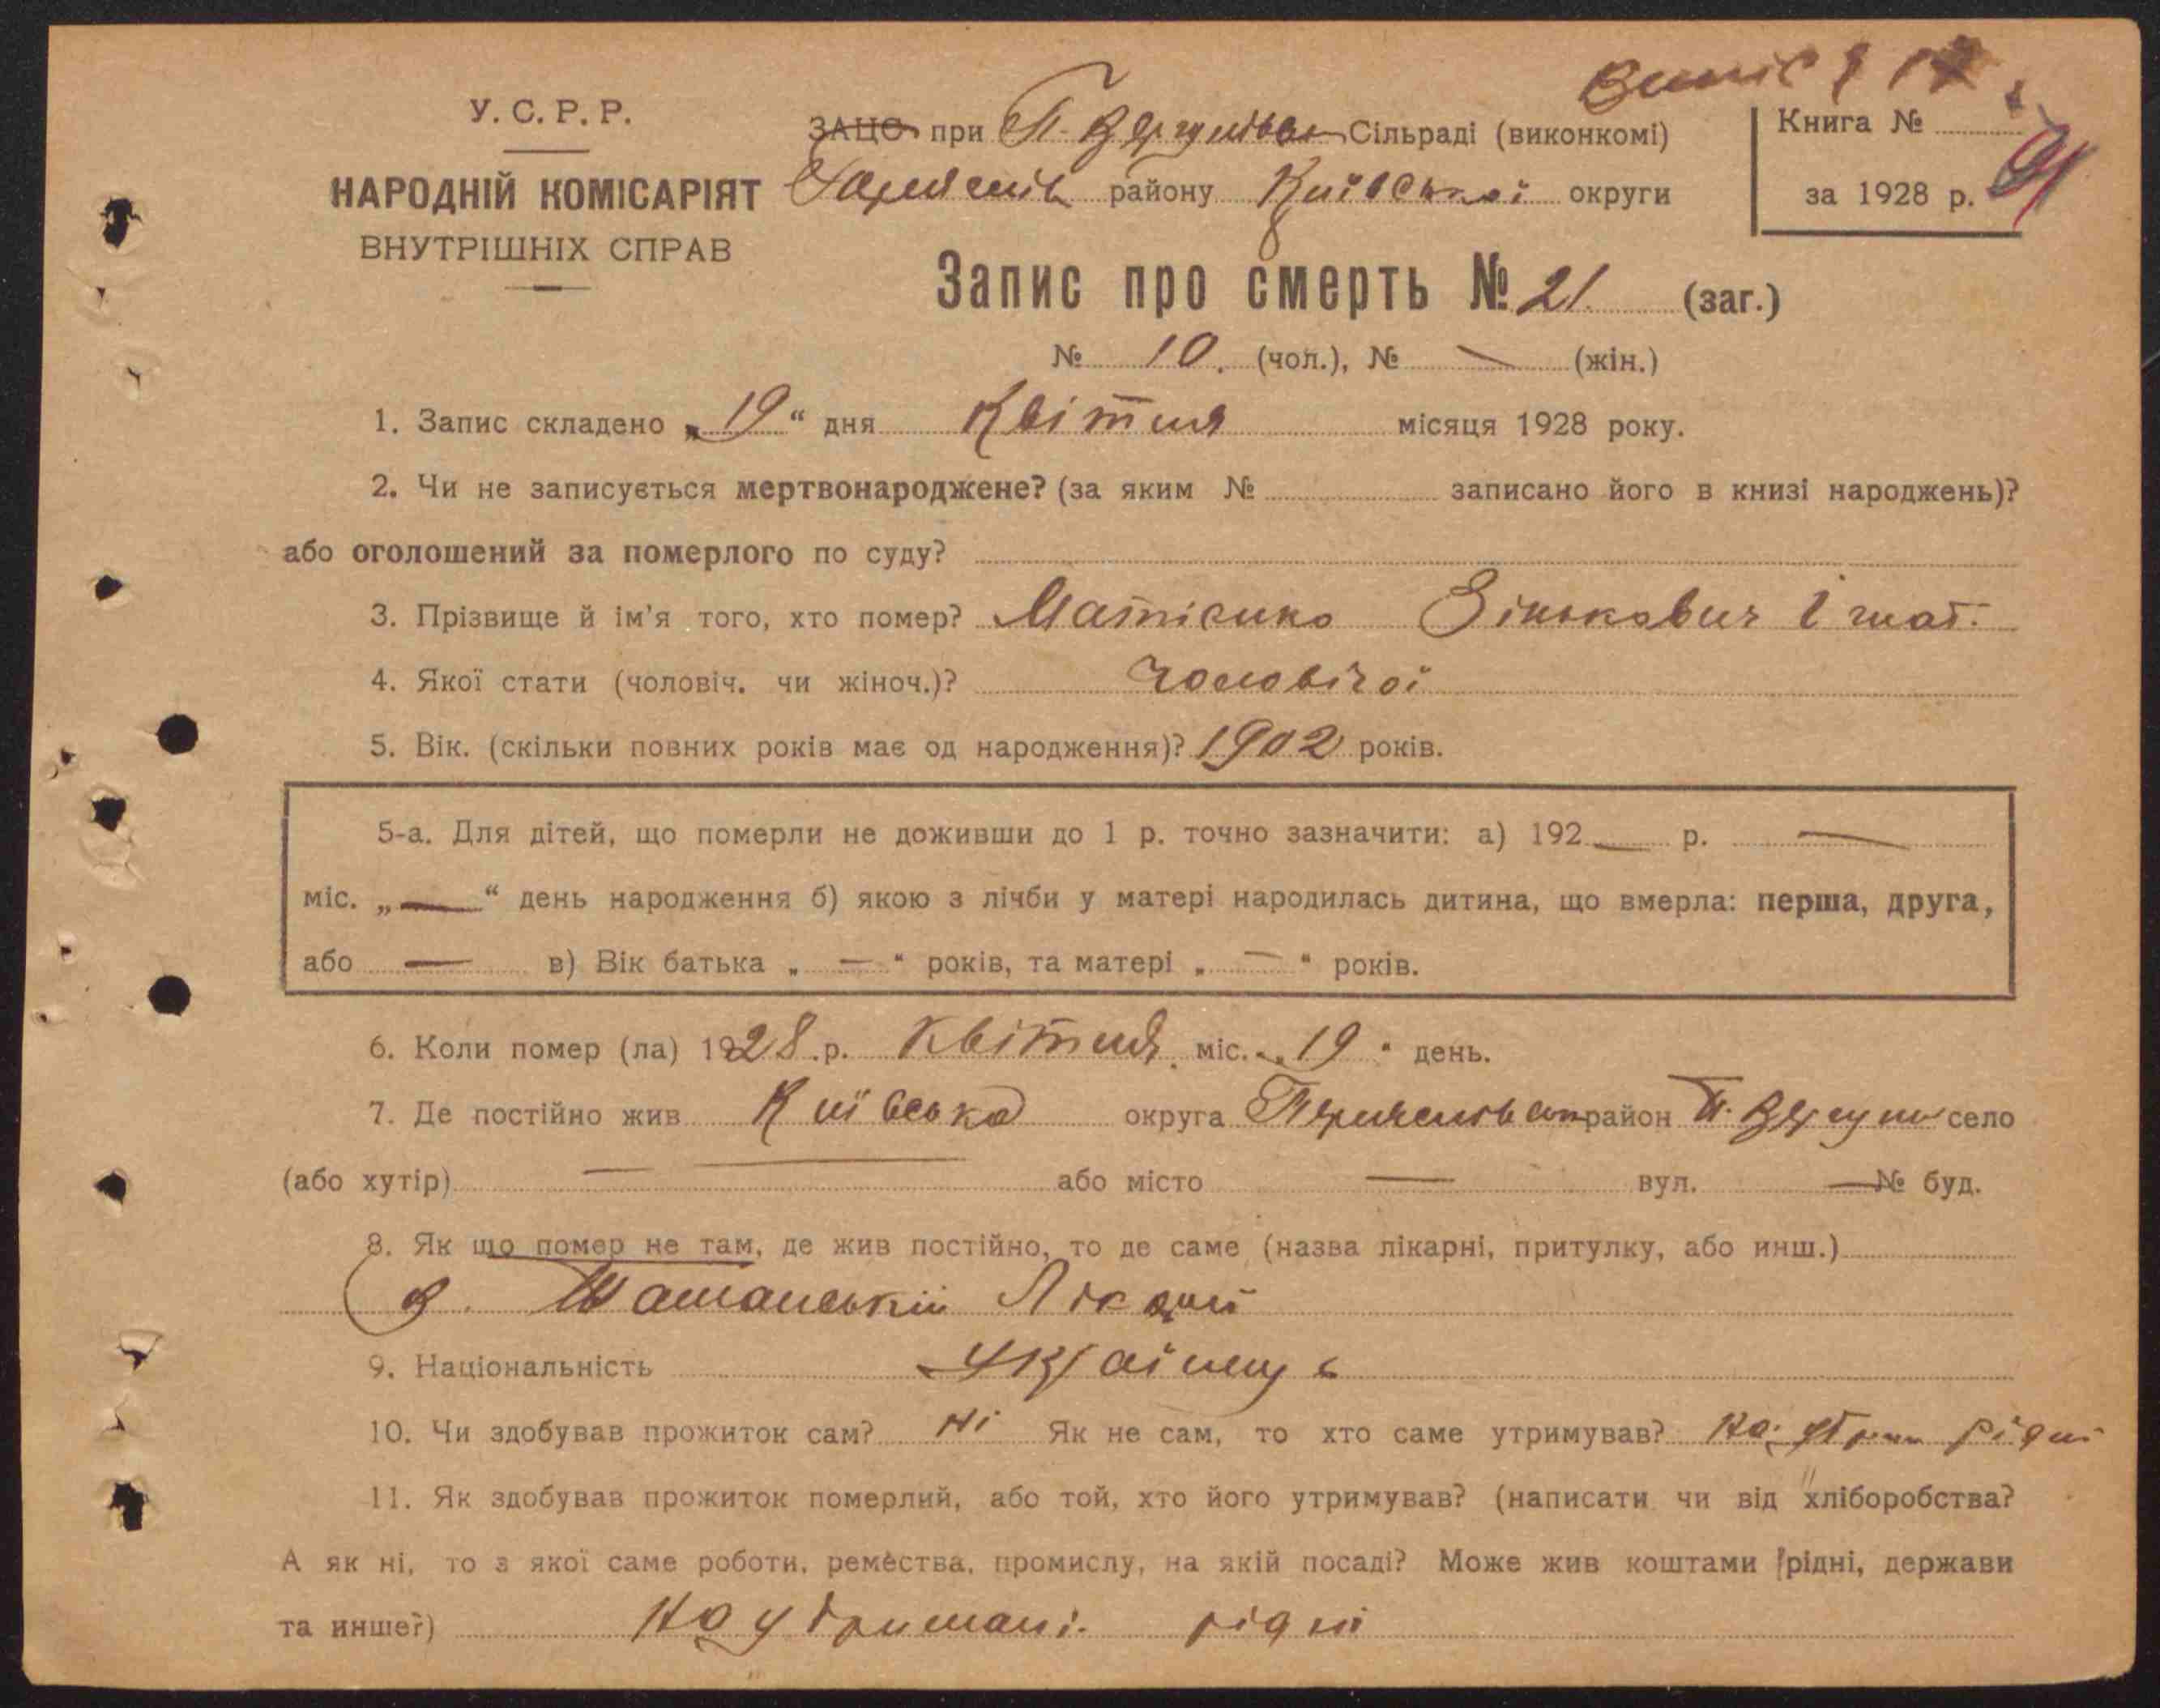 У. С. Р. Р.
НАРОДНІЙ КОМІСАРІЯТ
ВНУТРІШНІХ СПРАВ
ЗАЦС при Сільраді (виконкомі)
району Київської округи
Книга №
за 1928 р.
Запис про смерть № 21 (заг.)
№ 10. (чол.), № — (жін.)
1. Запис складено „19“ дня Квітня місяця 1928 року.
2. Чи не записується мертвонароджене? (за яким № записано його в книзі народжень)?
або оголошений за померлого по суду?
3. Прізвище й ім'я того, хто помер? Матісико Зінькович Ігнат.
4. Якої стати (чоловіч. чи жіноч.)? Чоловічої
5. Вік. (скільки повних років має од народження)? 1902 років.
5-а. Для дітей, що померли не доживши до 1 р. точно зазначити: а) 192 — р. —
міс. „—“ день народження б) якою з лічби у матері народилась дитина, що вмерла: перша, друга,
або — в) Вік батька „ — “ років, та матері „ — “ років.
6. Коли помер (ла) 1928 р. Квітня міс. „19“ день.
7. Де постійно жив Київська округа район село
(або хутір) — або місто — вул. — № буд.
8. Як що помер не там, де жив постійно, то де саме (назва лікарні, притулку, або инш.)
в Ташанській Лікарні
9. Національність Українець
10. Чи здобував прожиток сам? Ні Як не сам, то хто саме утримував? рідні
11. Як здобував прожиток померлий, або той, хто його утримував? (написати чи від хліборобства?
А як ні, то з якої саме роботи, ремества, промислу, на якій посаді? Може жив коштами рідні, держави
та инше?) На утримані рідні